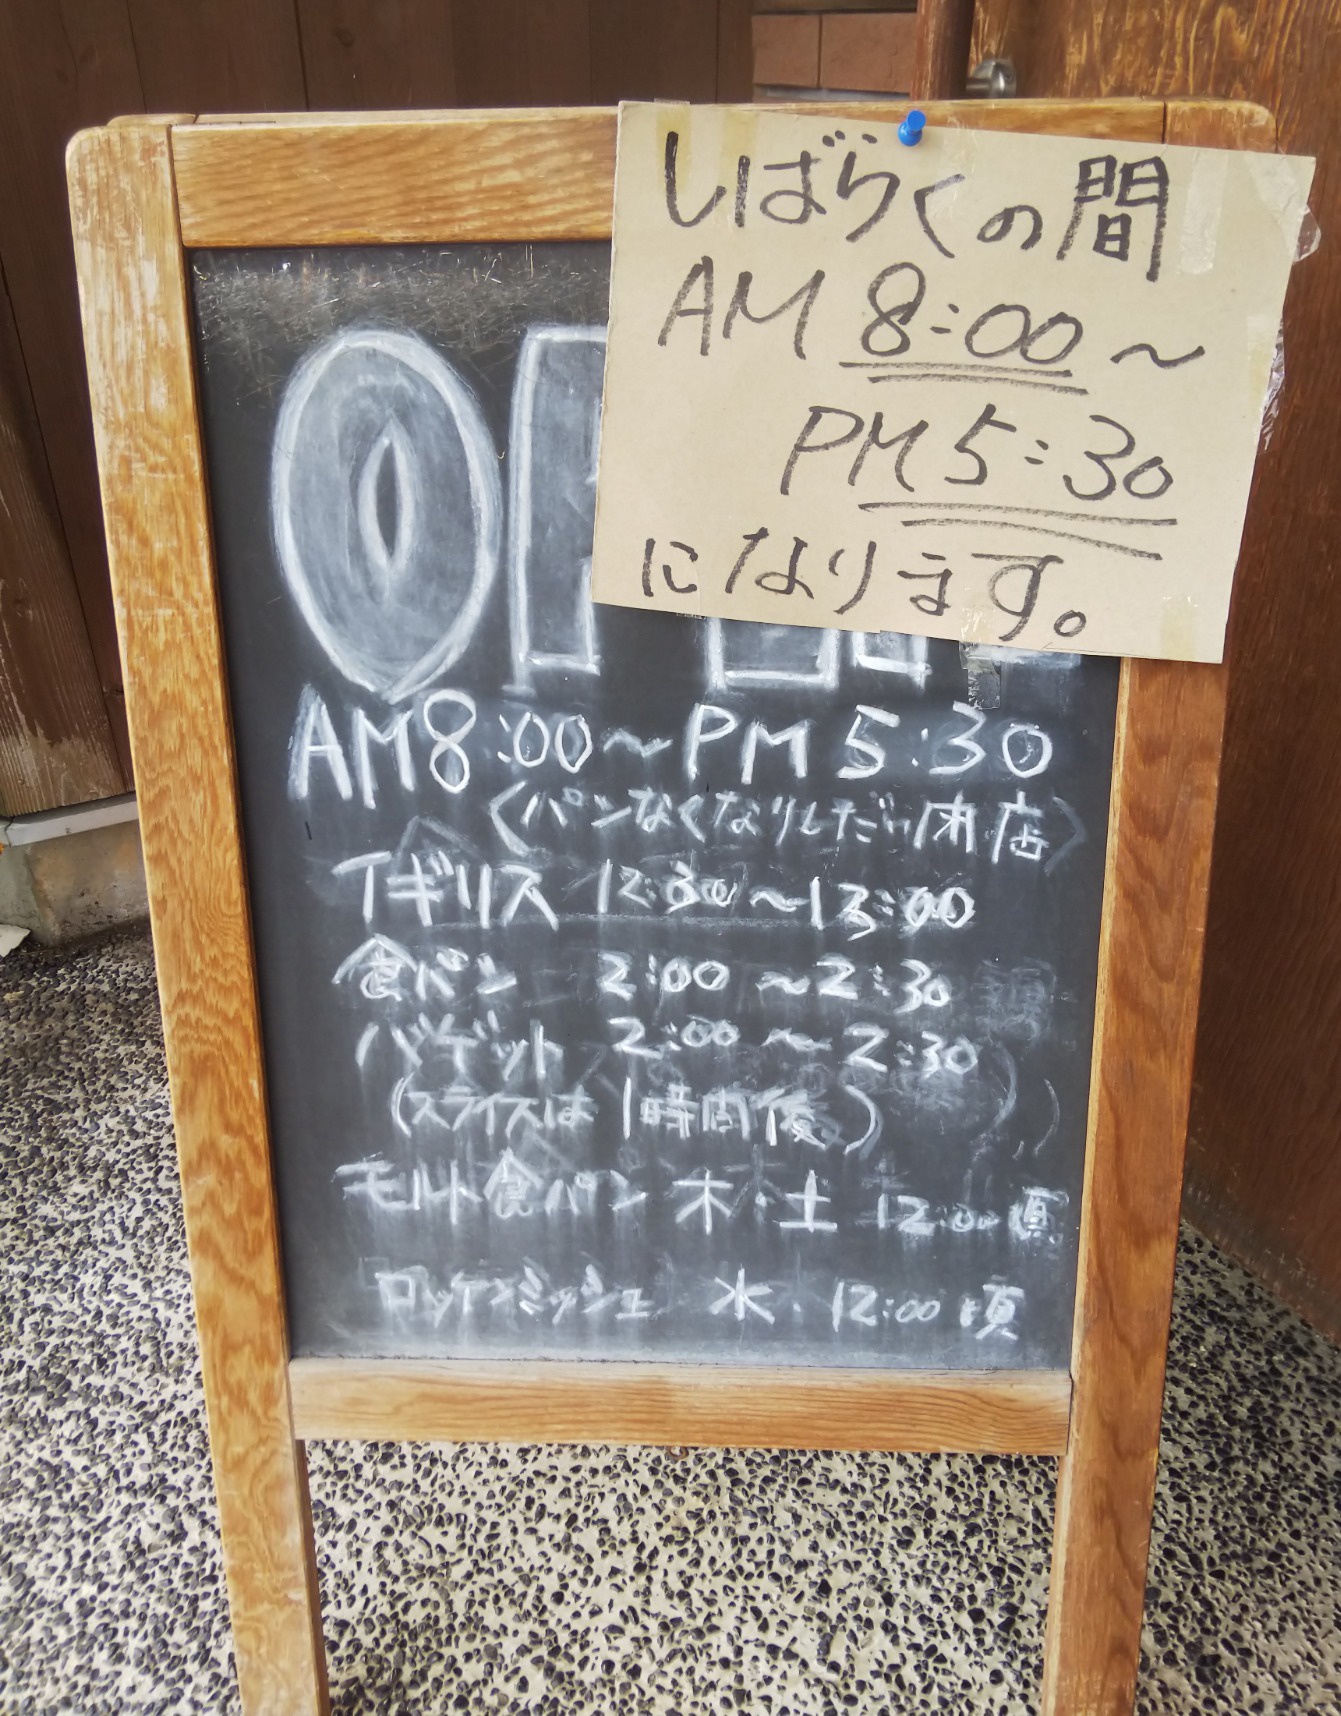 しばらくの間
AM 8:00〜
PM 5:30
になります。
AM8:00〜PM 5:30
〈パンなくなりしだい閉店〉
イギリス 12:30〜13:00
食パン 2:00〜2:30
バゲット 2:00〜2:30
(スライスは1時間後)
モルト食パン 木・土 12:00頃
ロッゲンミッシュ 水・12:00頃